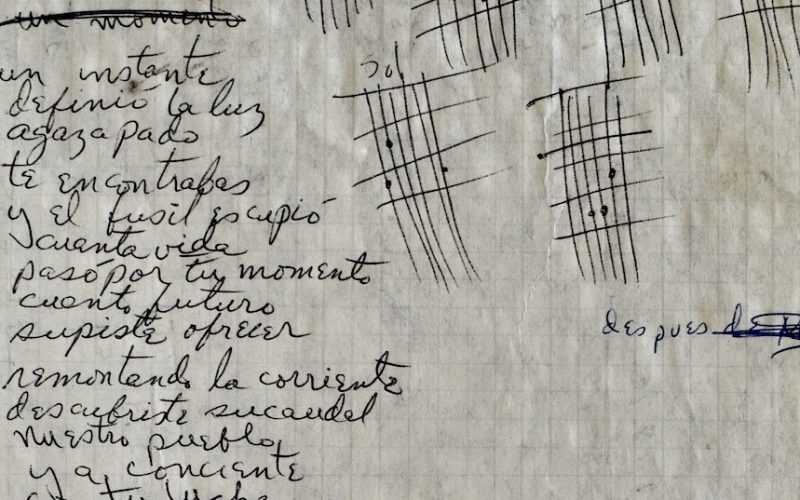 un momento
un instante
definió la luz
agazapado
te encontrabas
y el fusil escupió
cuanta vida
pasó por tu momento
cuanto futuro
supiste ofrecer
remontando la corriente
descubriste su caudal
nuestro pueblo
ya conciente
Sol
despues de